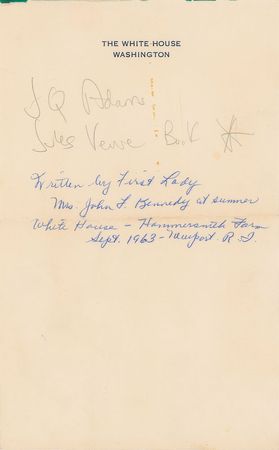 THE WHITE HOUSE
WASHINGTON
J Q Adams
Jules Verne Book
Written by First Lady
Mrs. John F. Kennedy at summer
White House - Hammersmith Farm
Sept. 1963 - Newport R. I.